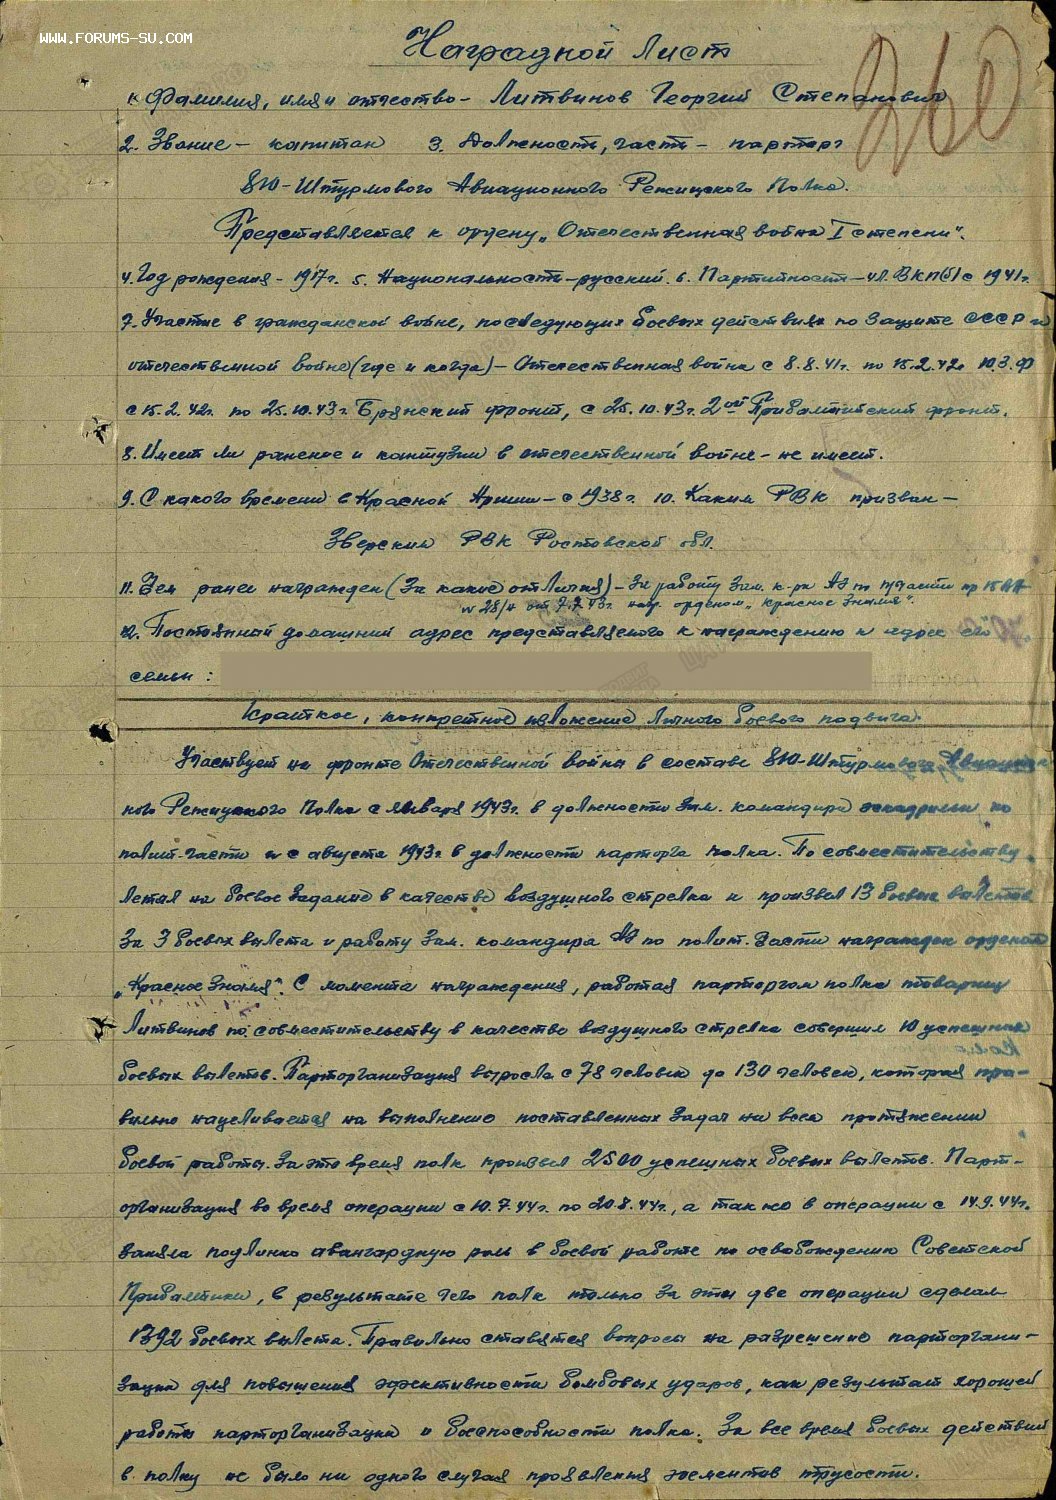 WWW.FORUMS-SU.COM
Наградной Лист
260
1. Фамилия, имя и отчество - Литвинов Георгий Степанович
2. Звание - капитан 3. Должность, часть - парторг
810-Штурмового Авиационного Режицкого Полка.
Представляется к ордену „Отечественная война I степени".
4. Год рождения - 1917г. 5. Национальность - русский. 6. Партийность - чл. ВКП(б) с 1941г.
7. Участие в гражданской войне, последующих боевых действиях по защите СССР и
отечественной войне (где и когда) - Отечественная война с 8.8.41г. по 15.2.42г.
с 15.2.42г. по 25.10.43г. Брянский фронт, с 25.10.43г. 2ой Прибалтийский фронт.
8. Имеет ли ранение и контузии в отечественной войне - не имеет.
9. С какого времени в Красной Армии - с 1938г. 10. Каким РВК призван -
РВК Ростовской обл.
11. Чем ранее награжден (За какие отличия) - За работу Зам. к-ра АЭ по п/части пр 15 ВА
№ 28/н от 7.7.43г. нагр. орденом „Красное Знамя".
12. Постоянный домашний адрес представляемого к награждению и адрес его
семьи:
Краткое, конкретное изложение личного боевого подвига.
Участвует на фронте Отечественной войны в составе 810-Штурмового Авиацион
ного Режицкого Полка с января 1943г. в должности Зам. командира эскадрильи по
полит-части и с августа 1943г. в должности парторга полка. По совместительству
летал на боевое задание в качестве воздушного стрелка и произвел 13 боевых вылетов
За 3 боевых вылета и работу Зам. командира АЭ по полит. части награжден орденом
„Красное Знамя". С момента награждения, работая парторгом полка товарищ
Литвинов по совместительству в качестве воздушного стрелка совершил 10 успешных
боевых вылетов. Парторганизация выросла с 78 человек до 130 человек, которая пра-
вильно нацеливается на выполнение поставленных задач на всем протяжении
боевой работы. За это время полк произвел 2500 успешных боевых вылетов. Парт-
организация во время операции с 10.7.44г. по 20.8.44г., а так же в операции с 14.9.44г.
заняла подлинно авангардную роль в боевой работе по освобождению Советской
Прибалтики, в результате чего полк только за эти две операции сделал
1392 боевых вылета. Правильно ставятся вопросы на разрешение парторгани-
зации для повышения эфективности бомбовых ударов, как результат хорошей
работы парторганизации и боеспособности полка. За все время боевых действий
в полку не было ни одного случая проявления элементов трусости.